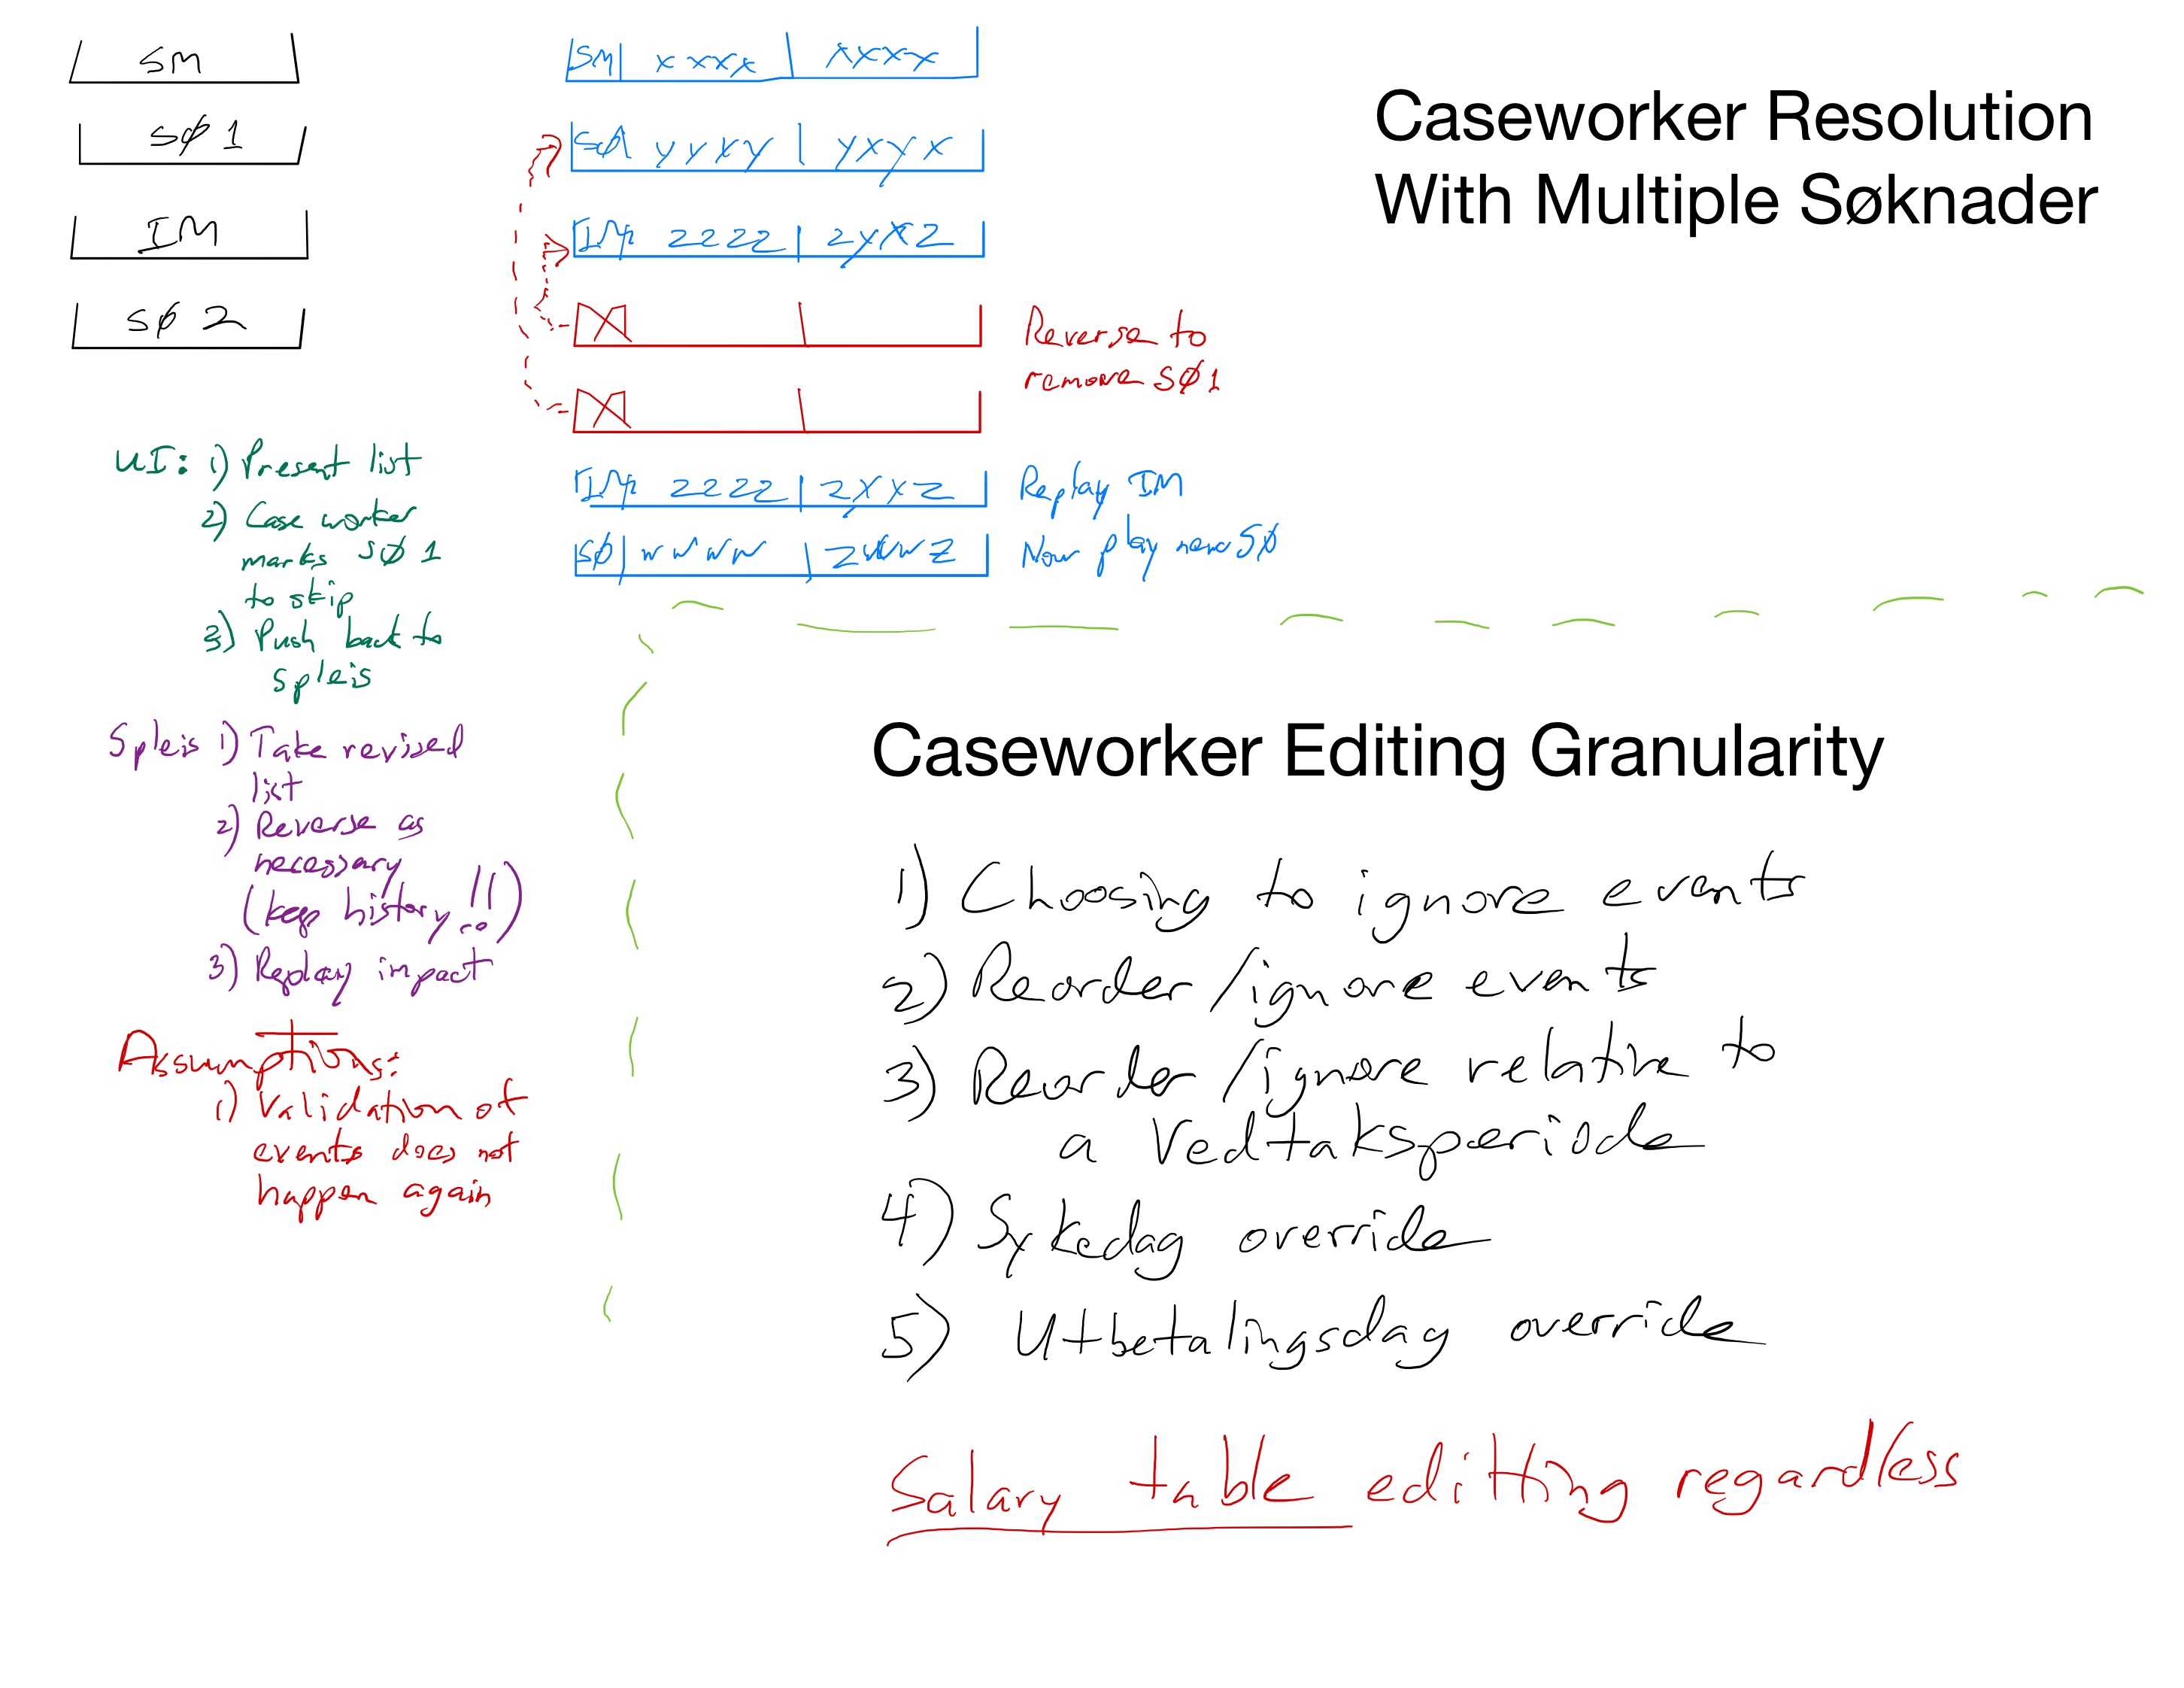 Caseworker Resolution
With Multiple Søknader
sm
sø 1
IM
sø 2
sm xxxx xxxx
sø1 yyxy yxyx
IM zzzz zyxz
Reverse to
remove SØ1
IM zzzz zxxz Replay IM
sø wwww zwwz Now play new SØ
UI: 1) Present list
2) Case worker
marks sø 1
to skip
3) Push back to
spleis
Spleis 1) Take revised
list
2) Reverse as
necessary
(keep history!!)
3) Replay impact
Assumptions:
1) Validation of
events does not
happen again
Caseworker Editing Granularity
1) Choosing to ignore events
2) Reorder/ignore events
3) Reorder/ignore relative to
a Vedtaksperiode
4) Sykedag override
5) Utbetalingsdag override
Salary table editting regardless